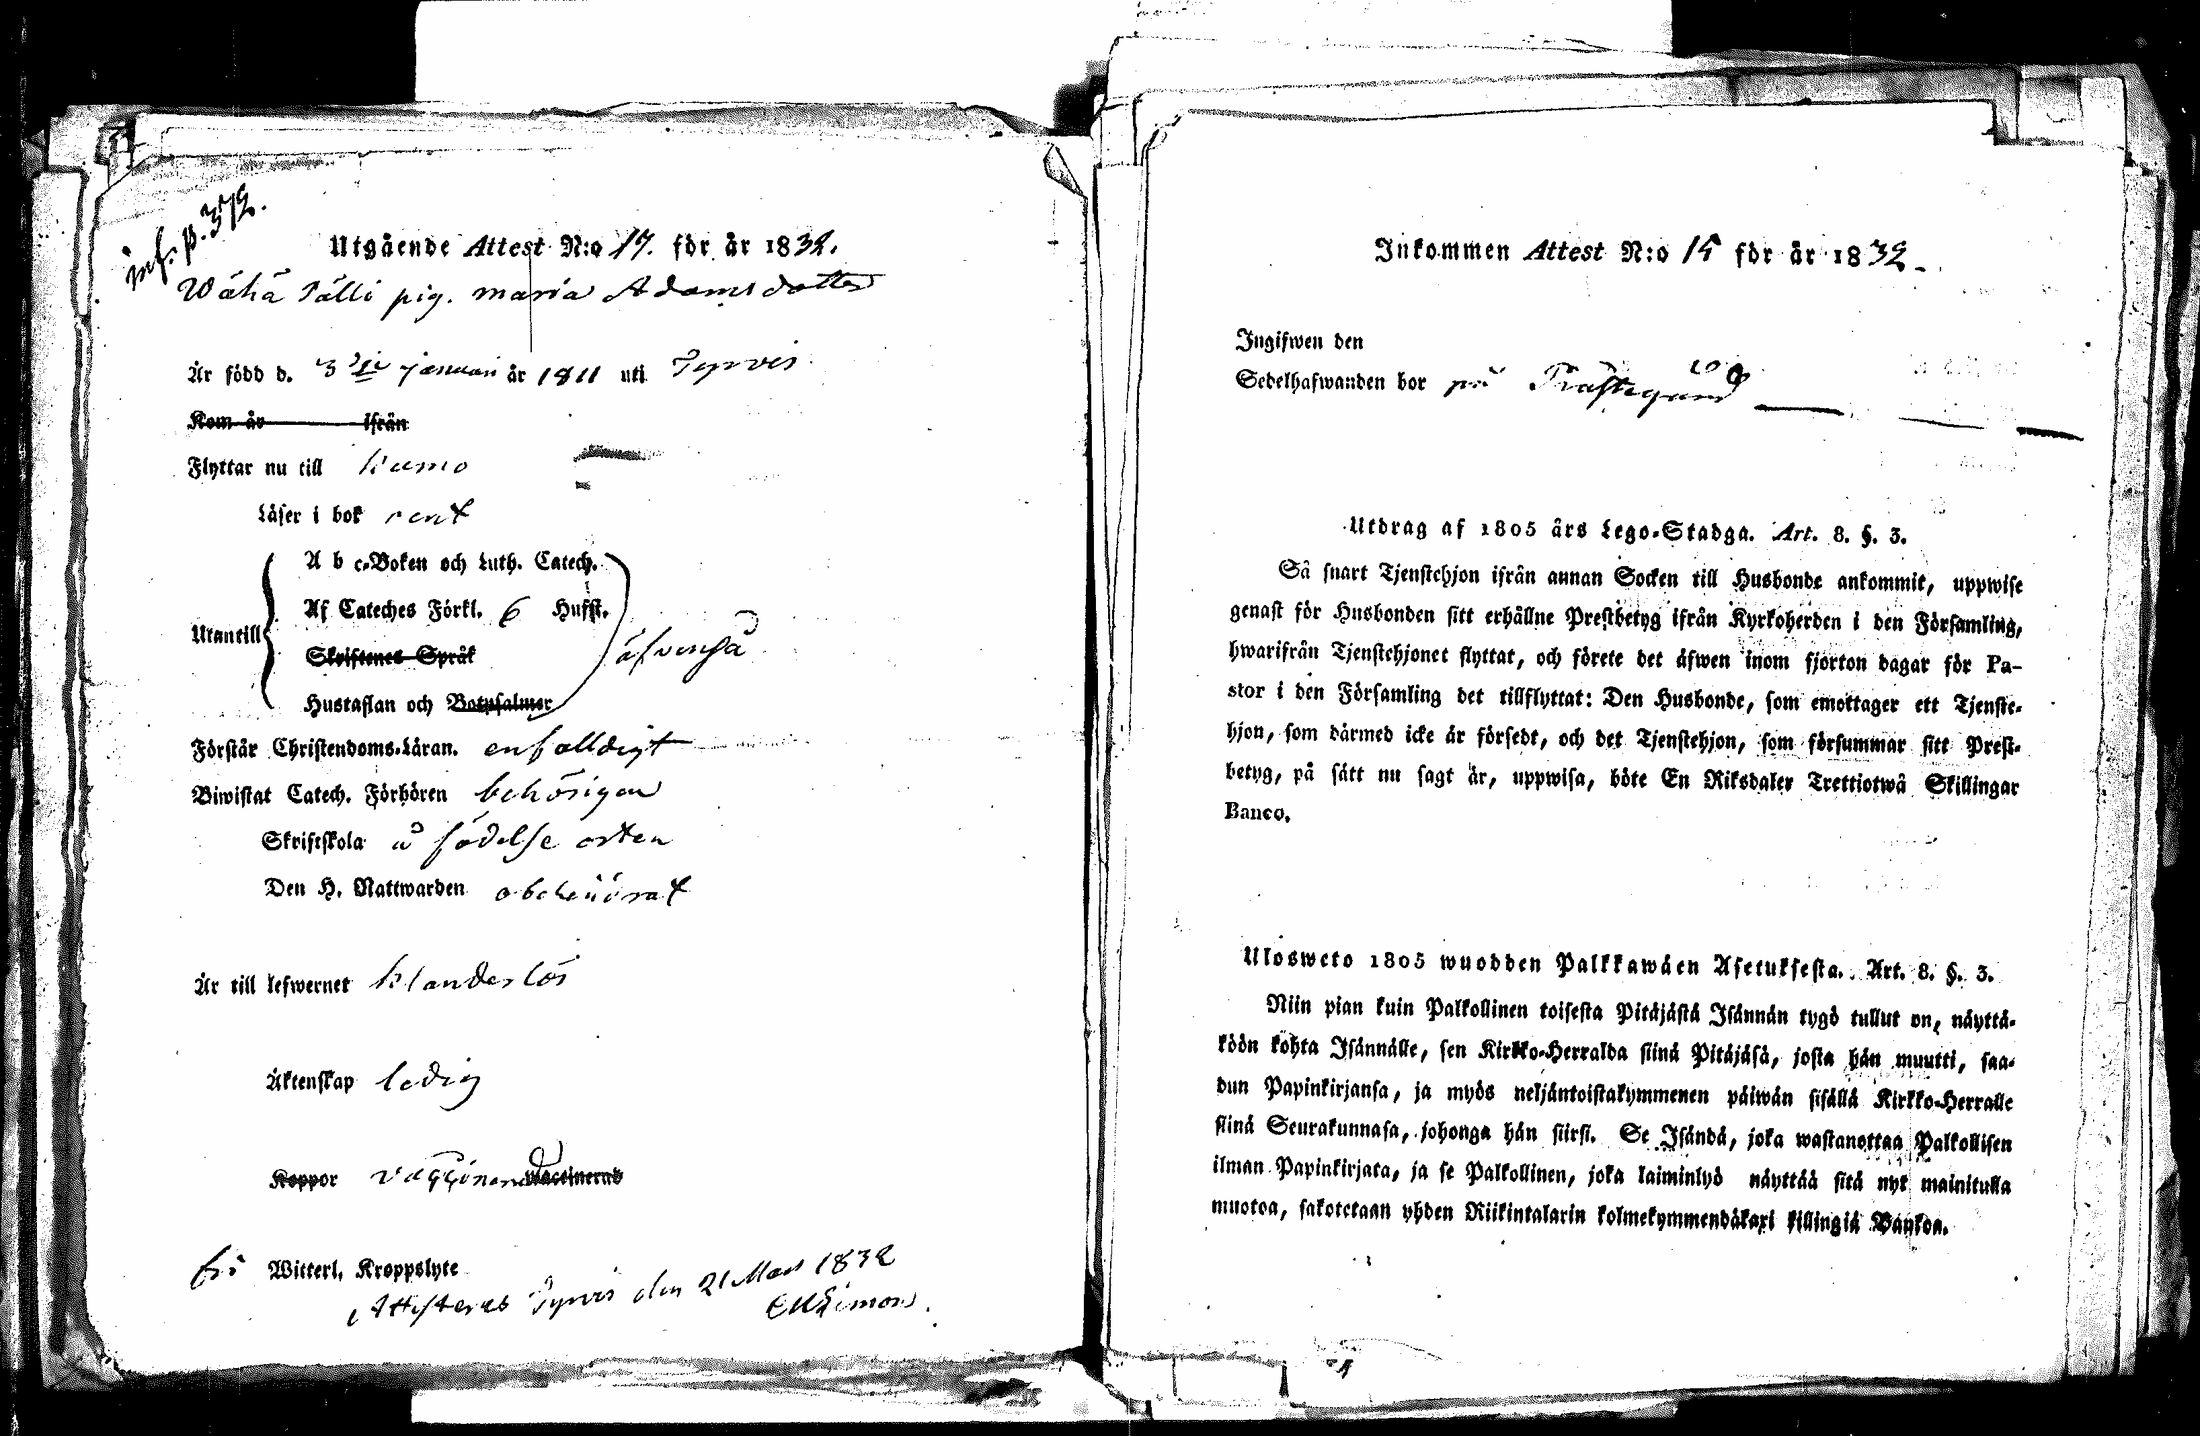 inf. p. 372.
Utgående Attest N:o 17. för år 1832.
Wähä Pälli pig. Maria Adamsdotter
Är född d. 3die januari år 1811 uti Tyrvis
Kom år ifrån
Flyttar nu till Kumo
Läser i bok rent
A b c-Boken och Luth. Catech.
Af Cateches Förkl. 6 Hufst.
Utantill
Skriftenes Språk
äfvenså
Hustaflan och Botpsalmer
Förstår Christendoms-Läran. enfalldigt
Biwistat Catech. Förhören behörigen
Skriftskola å födelse orten
Den H. Nattwarden obehindrat
Är till lefwernet klanderlös
Äktenskap ledig
Koppor vaccinerad Vaccinerad
fri Witterl. Kroppslyte
Attesteras Tyrvis den 21 Mars 1832
Simon.
Inkommen Attest N:o 15 för år 1832.
Ingifwen den
Sedelhafwanden bor på Prästegård
Utdrag af 1805 års Lego-Stadga. Art. 8. §. 3.
Så snart Tjenstehjon ifrån annan Socken till Husbonde ankommit, uppwise
genast för Husbonden sitt erhållne Prestbetyg ifrån Kyrkoherden i den Församling,
hwarifrån Tjenstehjonet flyttat, och förete det äfwen inom fjorton dagar för Pa-
stor i den Församling det tillflyttat: Den Husbonde, som emottager ett Tjenste-
hjon, som därmed icke är försedt, och det Tjenstehjon, som försummar sitt Prest-
betyg, på sätt nu sagt är, uppwisa, böte En Riksdaler Trettiotwå Skillingar
Banco.
Ulosweto 1805 wuodden Palkkawäen Asetuksesta. Art. 8. §. 3.
Niin pian kuin Palkollinen toisesta Pitäjästä Isännän tygö tullut on, näyttä-
köön kohta Isännälle, sen Kirkko-Herralda siinä Pitäjäsä, josta hän muutti, saa-
dun Papinkirjansa, ja myös neljäntoistakymmenen päiwän sisällä Kirkko-Herralle
siinä Seurakunnasa, johonga hän siirsi. Se Isändä, joka wastanottaa Palkollisen
ilman Papinkirjata, ja se Palkollinen, joka laiminlyö näyttää sitä nyt mainitulla
muotoa, sakotetaan yhden Riikintalarin kolmekymmendäkaxi killingiä Bankoa.